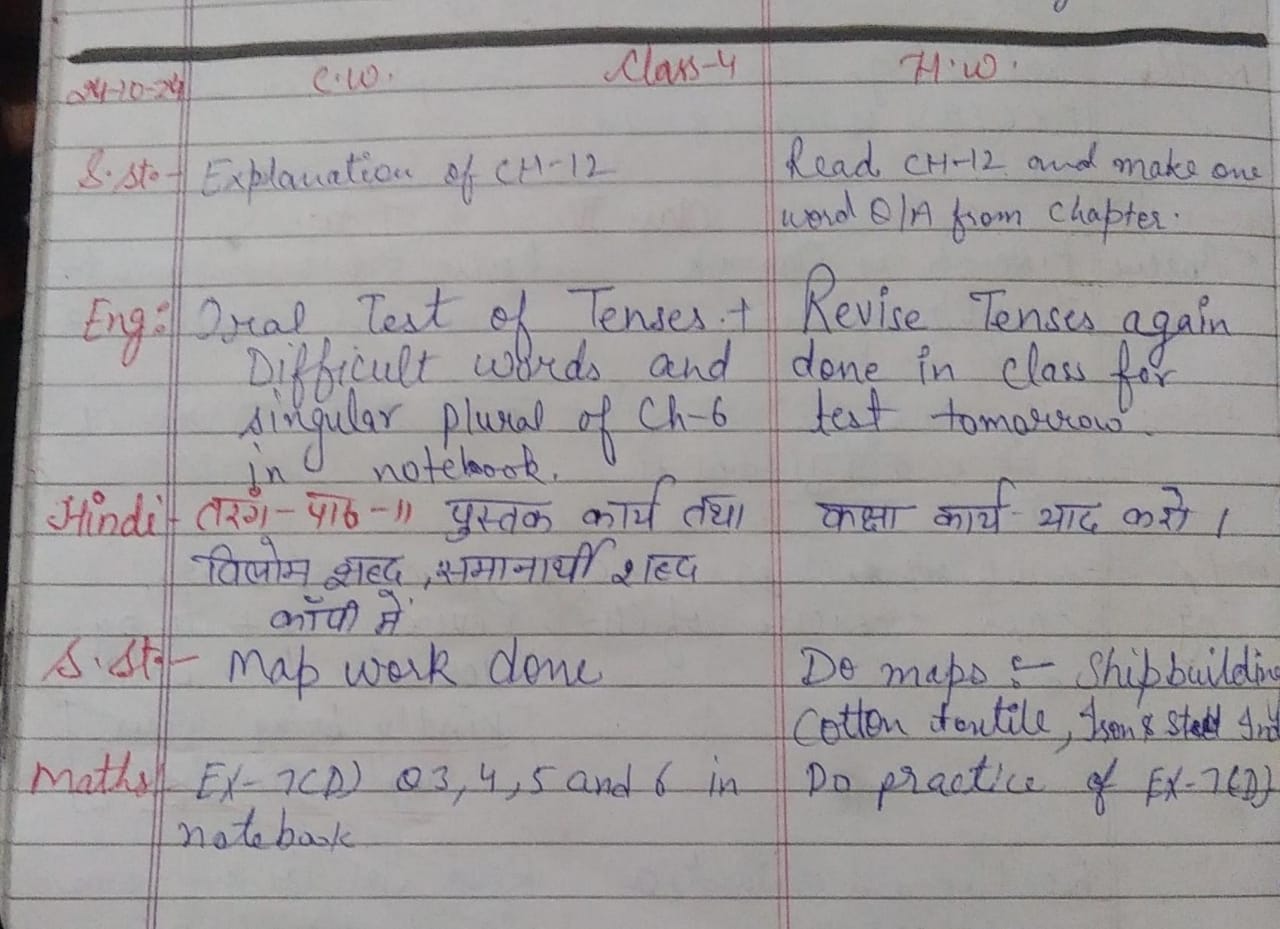 24-10-24 C.W. Class-4 H.W.
S.St:- Explanation of CH-12 Read CH-12 and make one
word Q/A from chapter.
Eng: Oral Test of Tenses.+ Revise Tenses again
Difficult words and done in class for
singular plural of Ch-6 test tomorrow.
in notebook.
Hindi- तरंग-पाठ-11 पुस्तक कार्य तथा कक्षा कार्य याद करो ।
विलोम शब्द ,समानार्थी शब्द
कॉपी में
S.St:- Map work done Do maps :- Shipbuilding
Cotton textile, Iron & Steel Ind
Maths EX-7(D) Q3,4,5 and 6 in Do practice of EX-7(D)
notebook